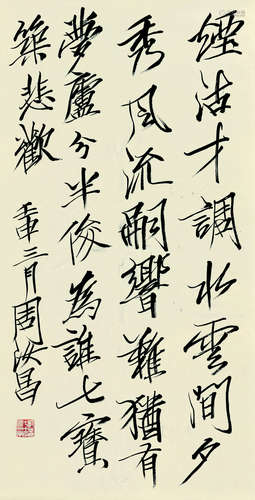 煙沽才調水雲間夕
秀風流嗣響難猶有
夢廬分半俊為誰七寶
築悲歡 壬申三月周汝昌